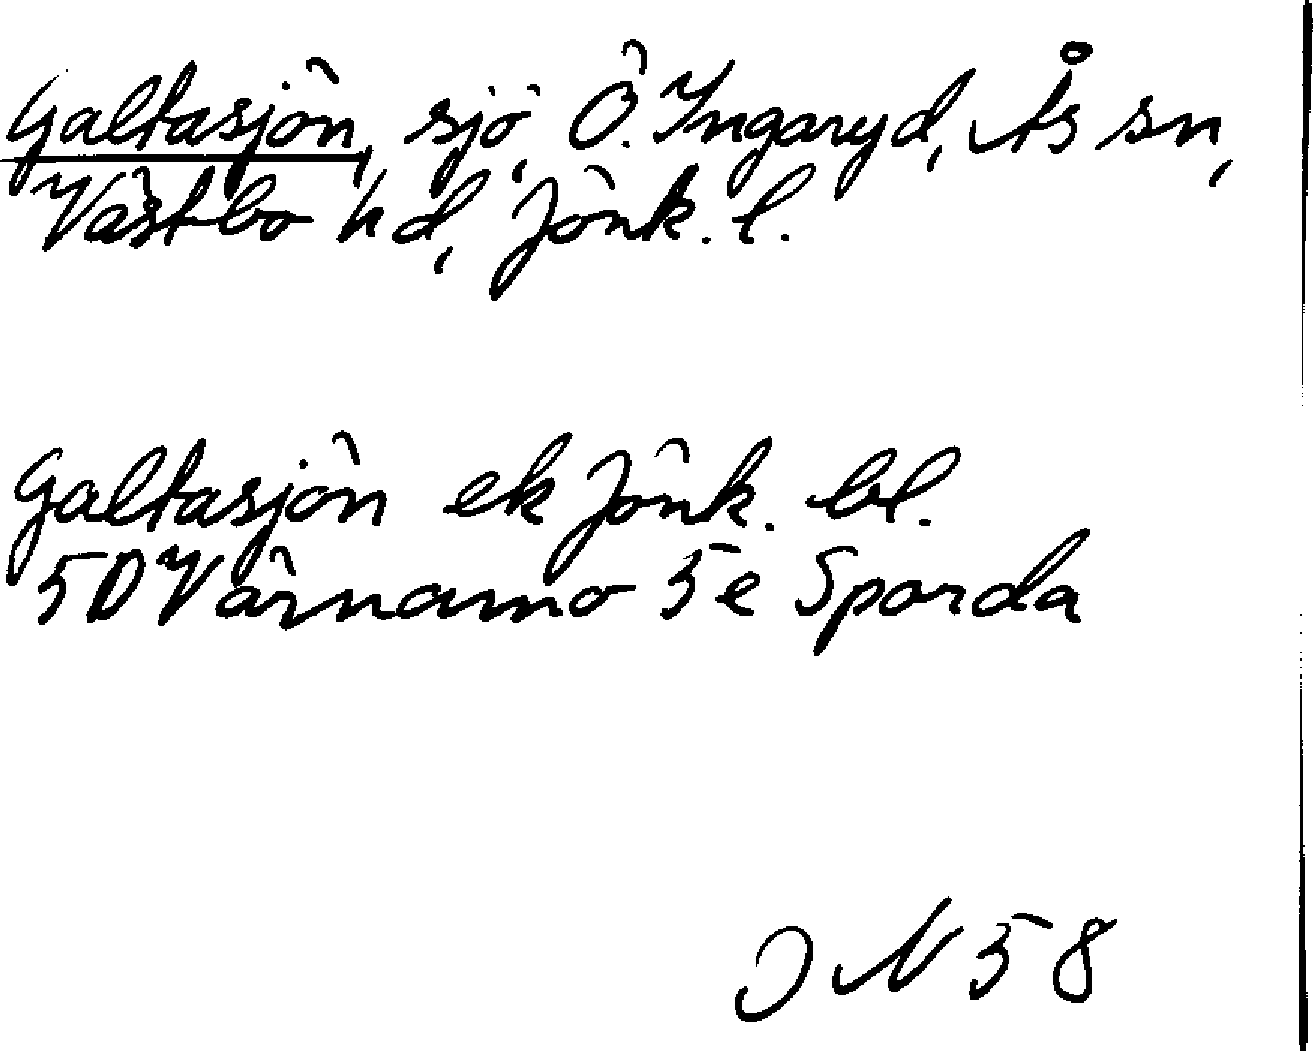 Galtasjön, sjö, Ö. Ingaryd, Ås sn,
Västbo hd, Jönk. l.
Galtasjön ek Jönk. bl.
5D Värnamo 5e Sporda
JN 58